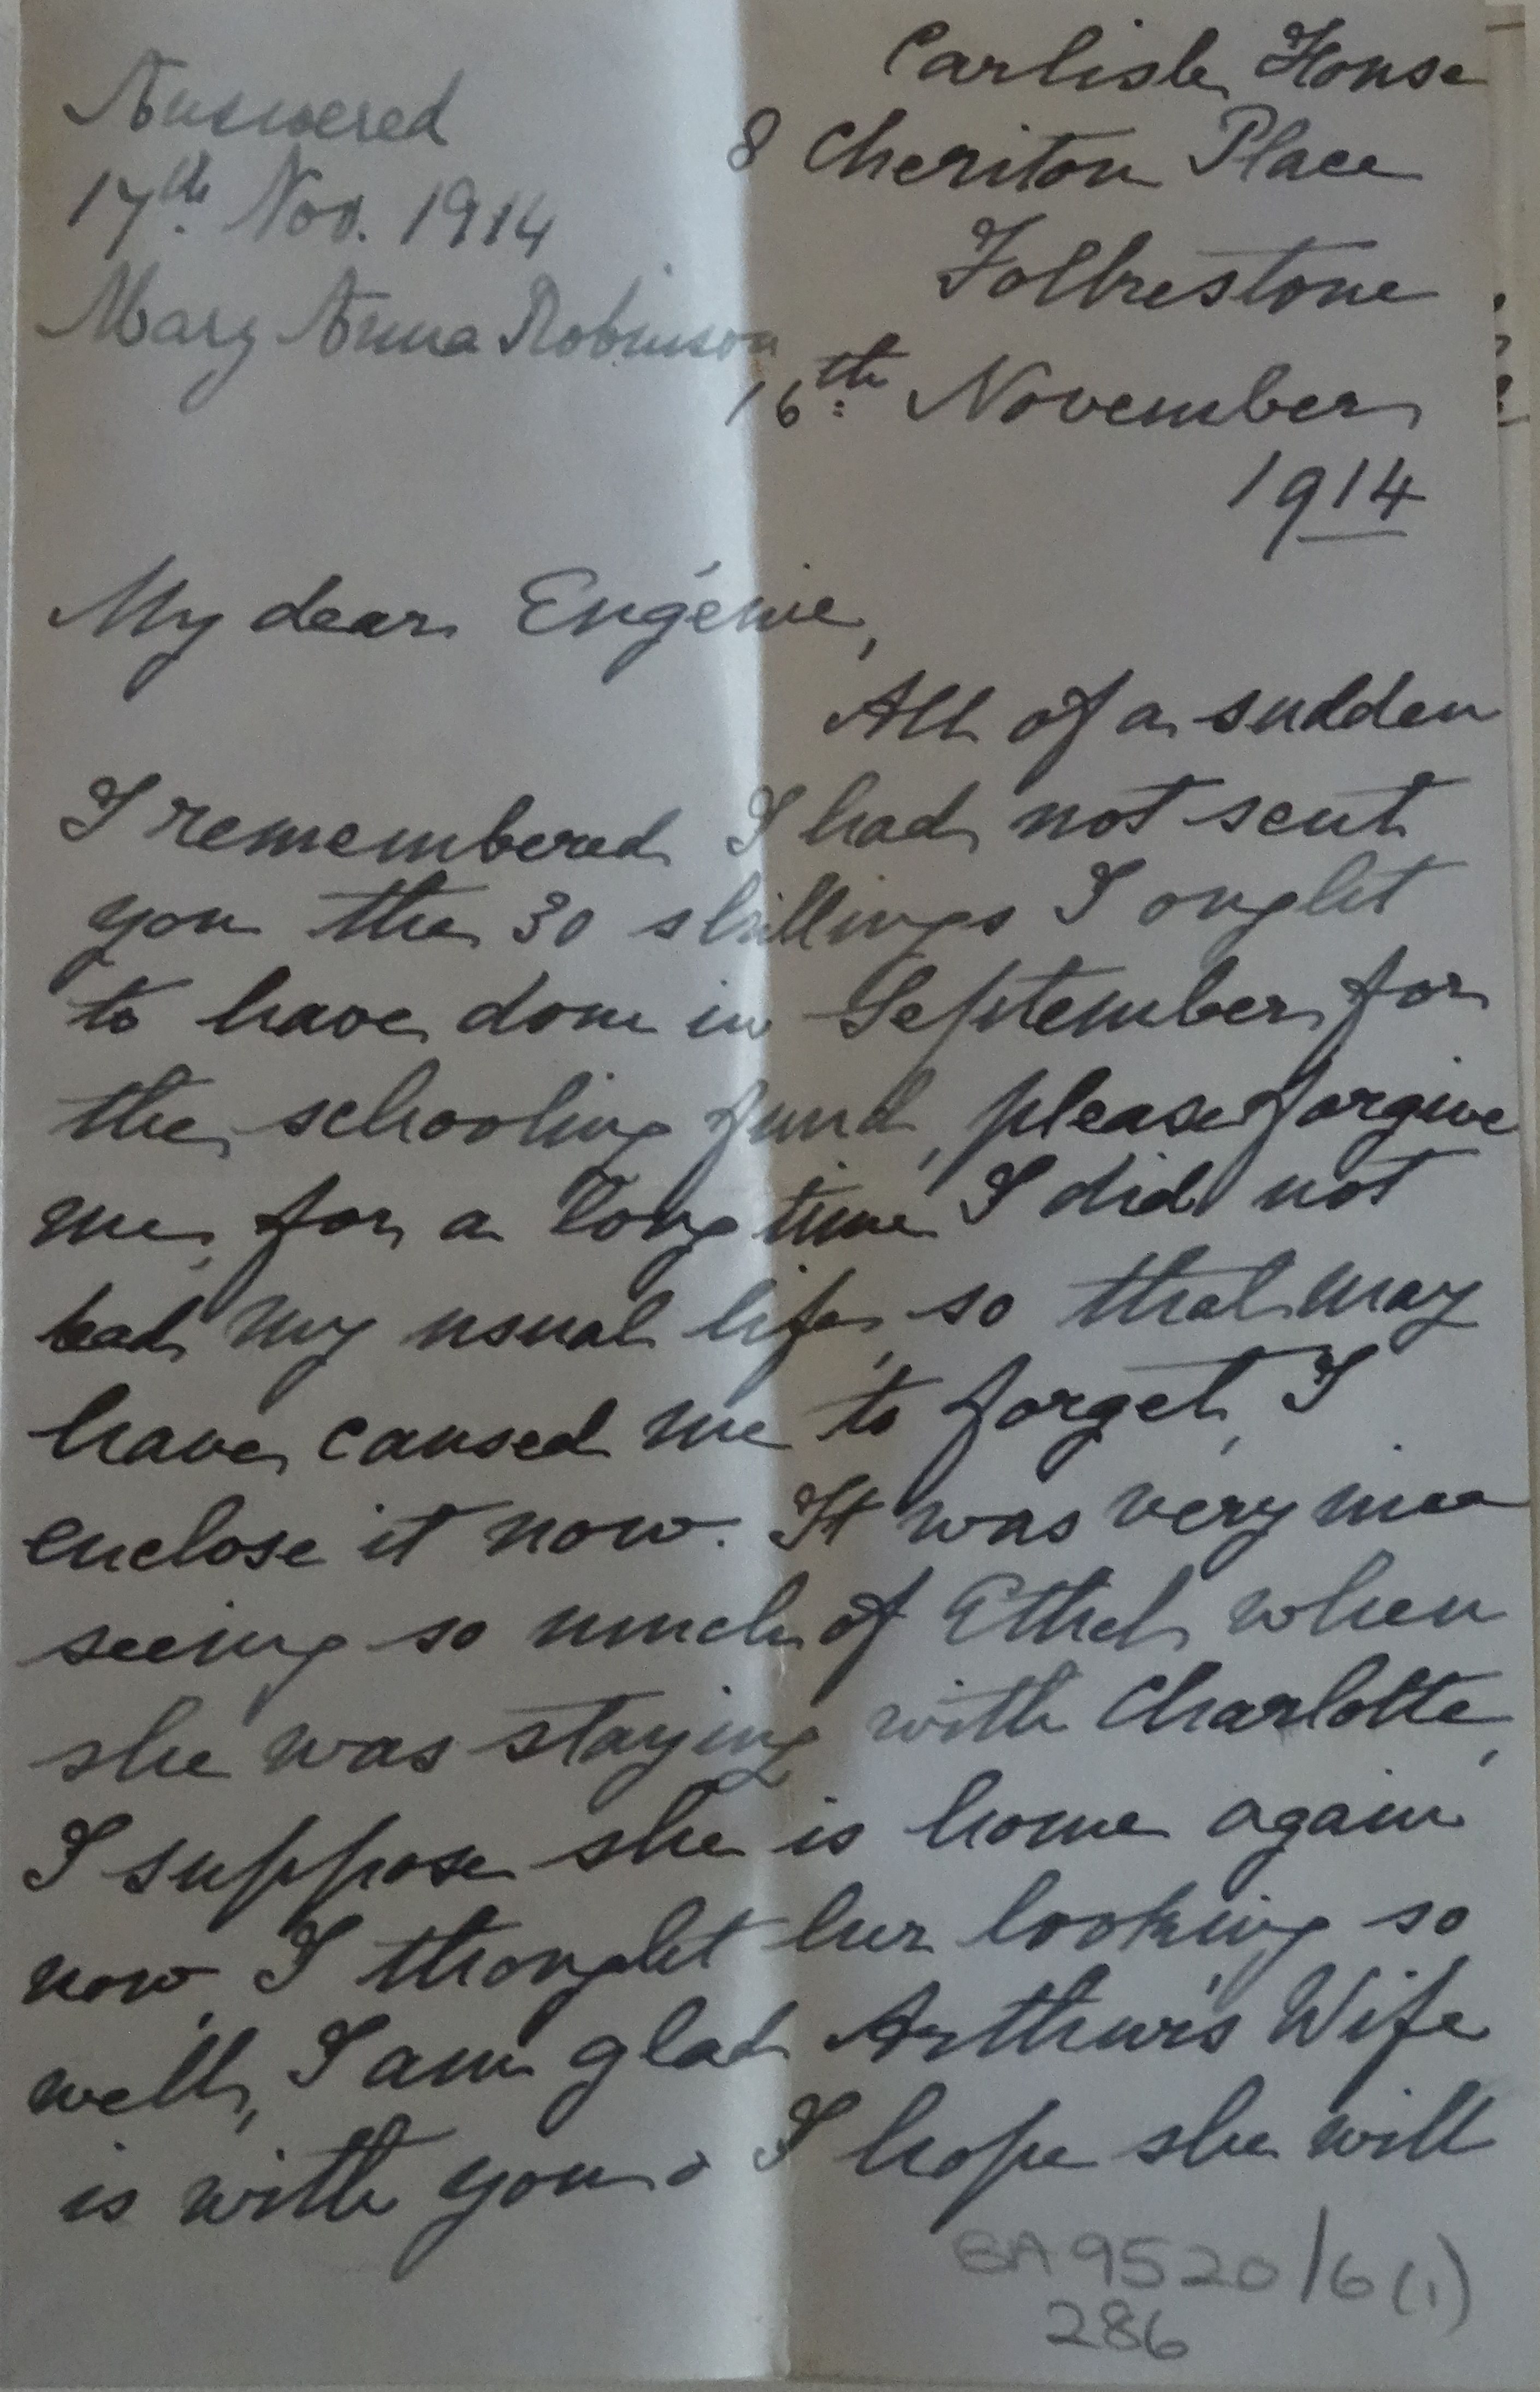 Answered
17th Nov. 1914
Mary Anna Robinson
Carlisle House
8 Cheriton Place
Folkestone
16th November
1914
My dear Eugénie,
All of a sudden
I remembered I had not sent
you the 30 shillings I ought
to have done in September for
the schooling fund, please forgive
me, for a long time I did not
lead my usual life, so that may
have caused me to forget, I
enclose it now. It was very nice
seeing so much of Ethel when
she was staying with Charlotte,
I suppose she is home again
now, I thought her looking so
well, I am glad Arthur's Wife
is with you & I hope she will
BA 9520/6(1)
286